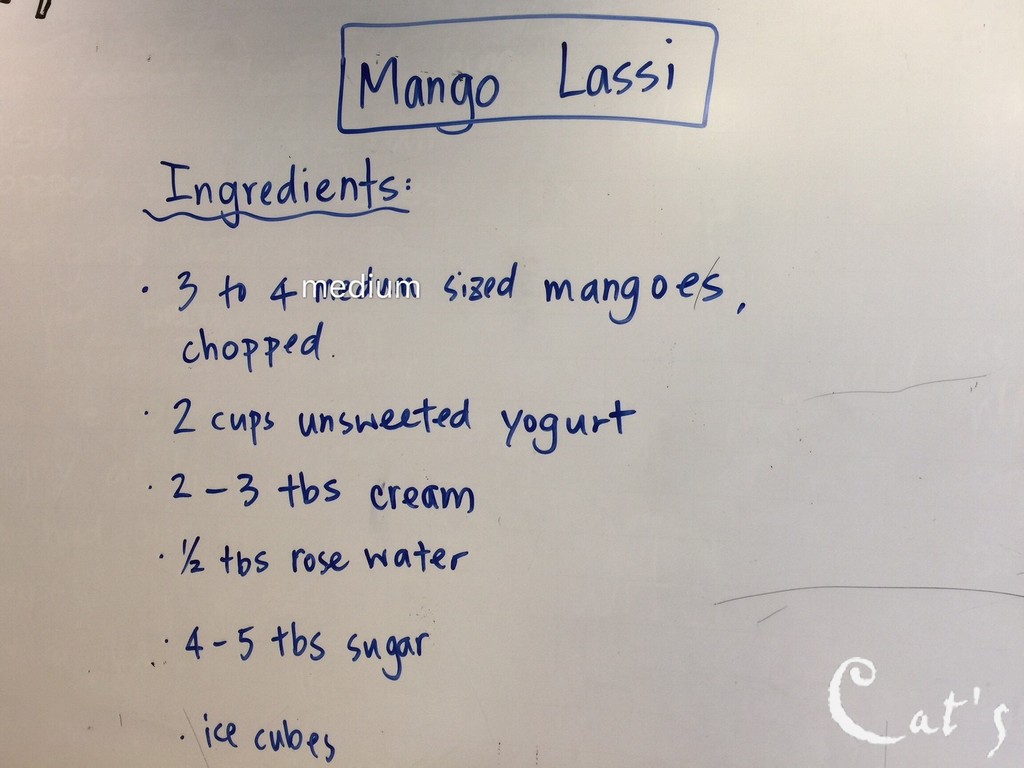 Mango Lassi
Ingredients:
· 3 to 4 medium sized mangoes,
chopped.
· 2 cups unsweeted yogurt
· 2 - 3 tbs cream
· ½ tbs rose water
· 4 - 5 tbs sugar
· ice cubes
Cat's